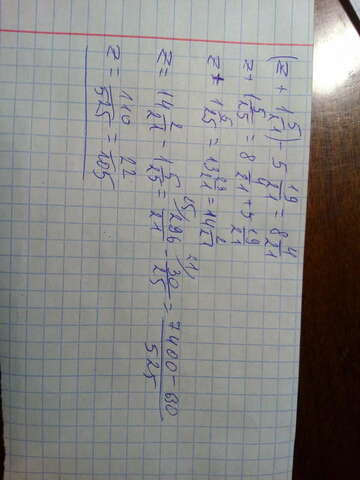 (z + 1 5/21) - 5 19/21 = 8 4/21
z + 1 5/25 = 8 4/21 + 5 19/21
z + 1 5/25 = 13 23/21 = 14 2/21
z = 14 2/21 - 1 5/25 = 25/ 296/21 - 21/ 30/25 = 7400-60/525
z = 110/525 = 22/105